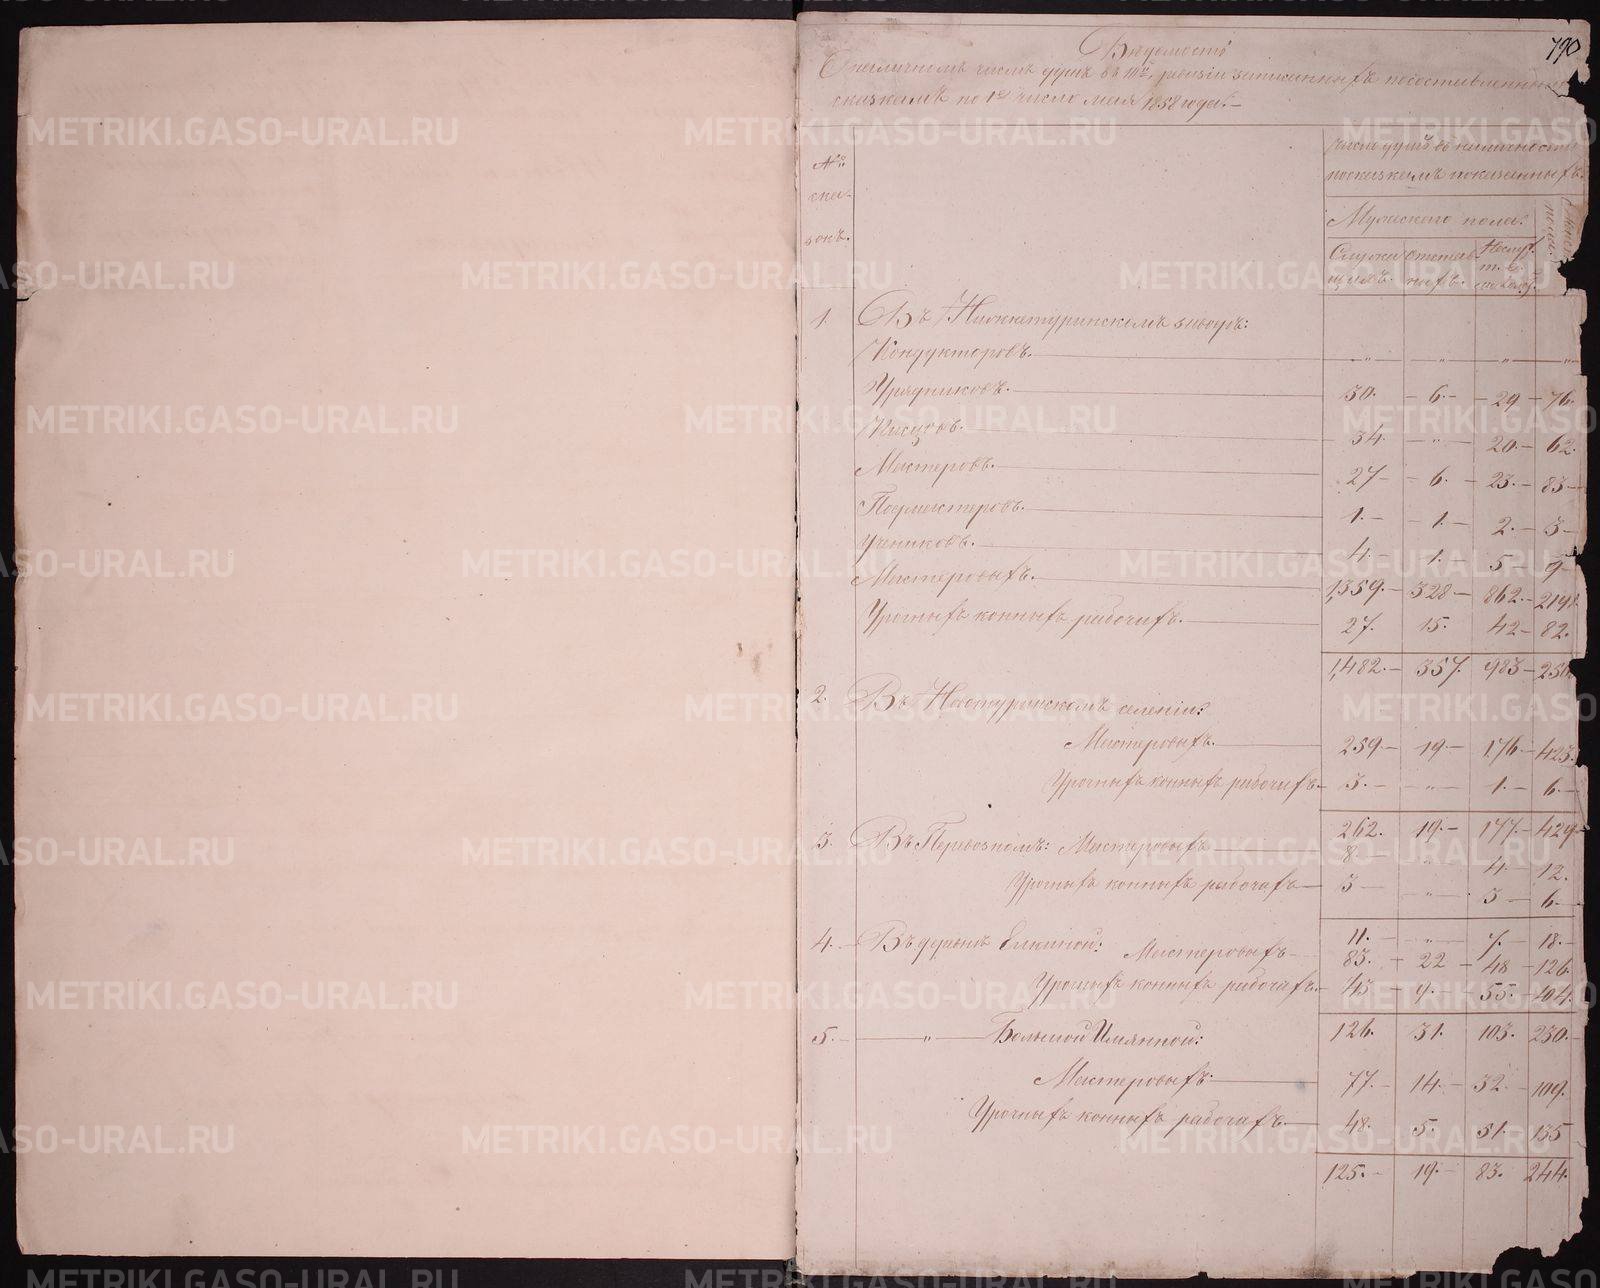 790
Вѣдомость
О наличномъ числѣ душъ въ 10ю ревизію записанныхъ по составленнымъ
сказкамъ по 1е число мая 1858 года.
№№ ска-зокъ.
число душъ въ наличности
по сказкамъ показанныхъ.
Мужескаго пола:
Служащихъ. Отставныхъ.
1. Въ Нижнетуринскомъ заводѣ:
Кондукторовъ. — „ — „ — „ — „
Урядниковъ. — 30. — 6. — 29 — 76.
Писцовъ. — 34. — „ — 20. — 62.
Мастеровъ. — 27 — 6. — 23. — 83 —
Подмастеровъ. — 1. — 1. — 2. — 3 —
Учениковъ. — 4. — 1. — 5 — 9
Мастеровыхъ. — 1,359. — 328 — 862. — 219
Урочныхъ конныхъ рабочихъ. — 27. 15. 42 — 82.
1,482. — 357. 983 — 250
2. Въ Новотуринскомъ селеніи:
Мастеровыхъ. — 259 — 19 — 176 — 423.
Урочныхъ конныхъ рабочихъ — 3. — „ — 1. — 6. —
262. 19. — 177. — 429 —
3. Мастеровыхъ — 8 — „ 4. — 12.
Урочныхъ конныхъ рабочихъ — 3 — „ 3 — 6. —
11. — „ 7. — 18. —
4. — Въ деревнѣ Елкиной: Мастеровыхъ — 83. — 22 — 48 — 126.
Урочныхъ конныхъ рабочихъ. — 43 — 9. — 55. — 104.
126. 31. 103. 230. —
5. — „ — Большой Имянной:
Мастеровыхъ. — 77. — 14. — 32. — 109.
Урочныхъ конныхъ рабочихъ. — 48. 5. 51. 135
125. — 19. — 83. 244.
METRIKI.GASO-URAL.RU